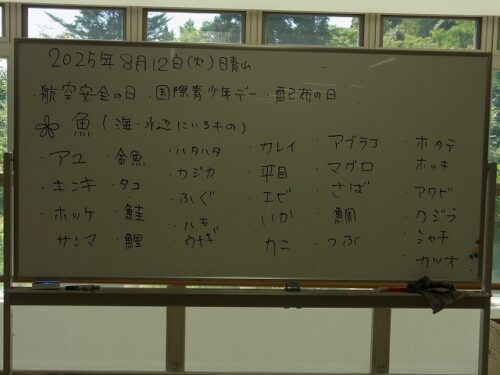 2025年8月12日(火)晴山
・航空安全の日 ・国際青少年デー ・配布の日
魚(海・水辺にいるもの)
・アユ ・金魚 ・ハタハタ ・カレイ ・アブラコ ・ホタテ
・キンキ ・タコ ・カジカ ・平目 ・マグロ ・ホッキ
・ホッケ ・鮭 ・ふぐ ・エビ ・さば ・アワビ
・サンマ ・鯉 ・ハモ ・いか ・鯛 ・クジラ
・ウナギ ・カニ ・つぶ ・シャチ
・カツオ